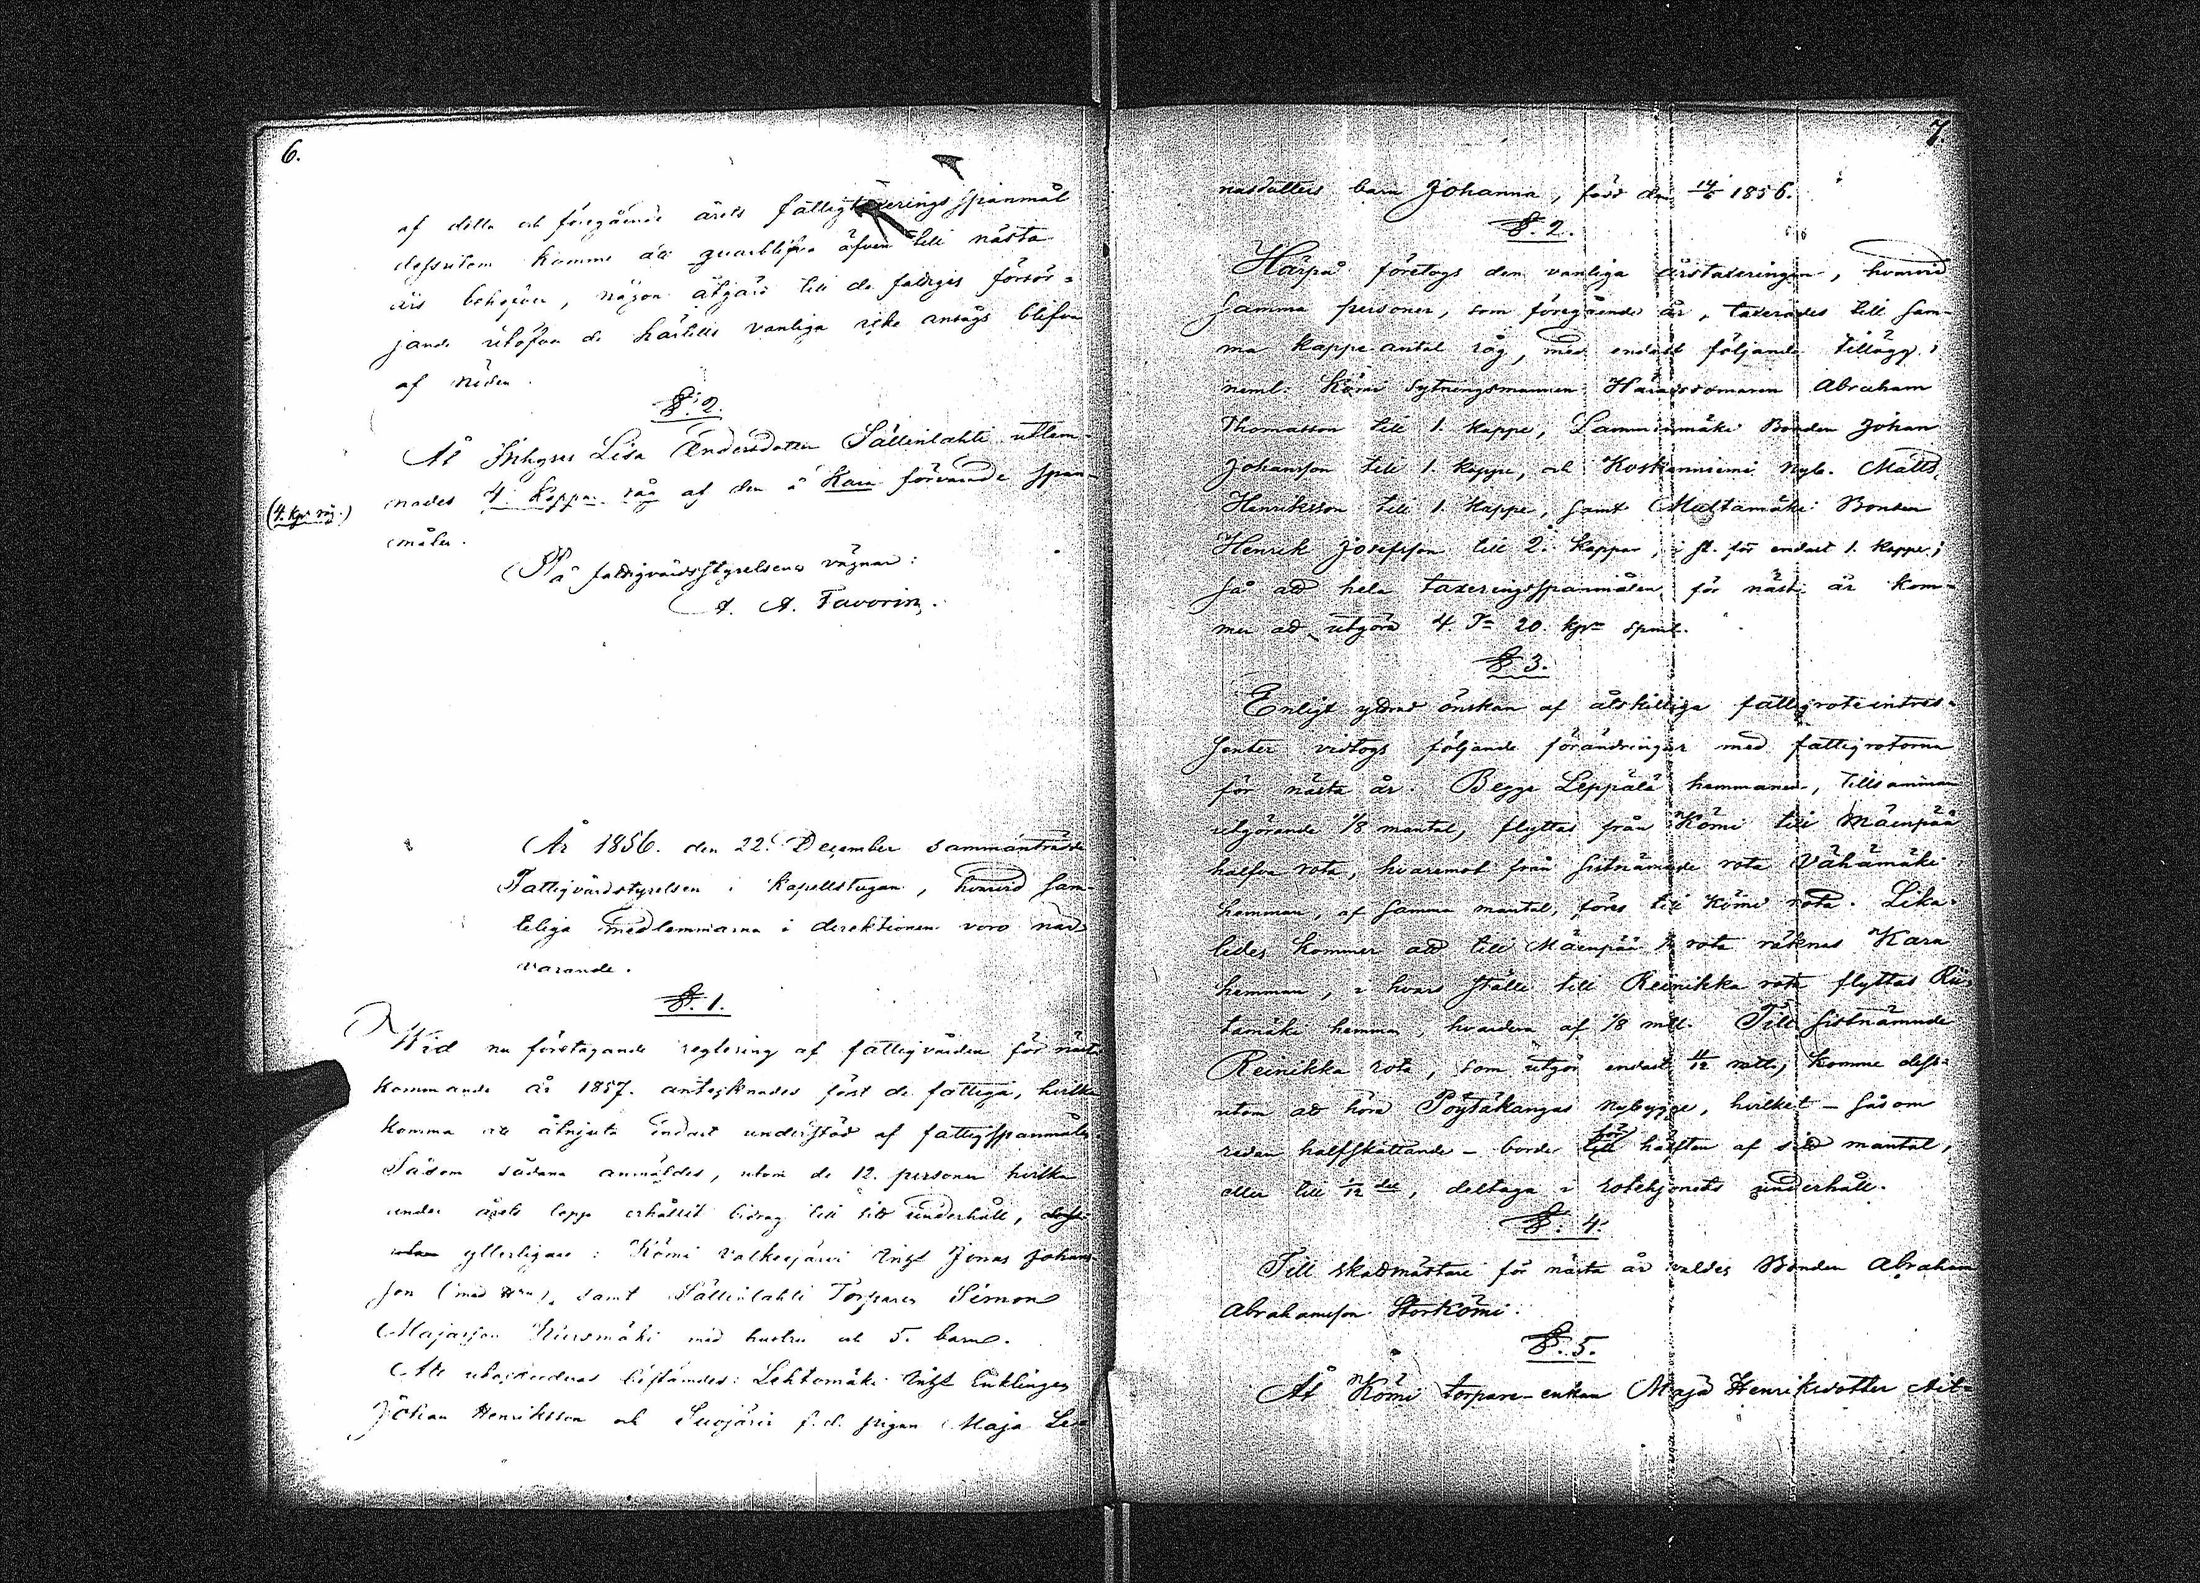 6.
af detta och föregående årets fattigtaxeringsspanmål
dessutom komme att quarblifva äfven till nästa
års behofver, någon åtgärd till de fattiges försör-
jande utöfver de härtills vanliga icke ansågs blifva
af nöden.
§. 2.
Åt Inhyses Lisa Andersdotter Sällinlahti utlem-
nades 4 kappar råg af den å Kara förvarade span-
målen.
(4. kpr råg.)
På fattigvårdsstyrelsens vägnar:
A. A. Favorin.
År 1856. den 22. December sammanträdde
Fattigvårdstyrelsen i Kapellstugan, hvarvid sam-
teliga medlemmarna i direktionen voro när-
varande.
§. 1.
Wid nu företagande reglering af fattigvården för näst-
kommande år 1857. antecknades först de fattiga, hvilka
komma att åtnjuta endast understöd af fattigspanmåln.
Såsom sådana anmäldes, utom de 12. personer hvilka
under årets lopp erhållit bidrag till sitt underhåll, dess-
utom ytterligare: Kömi Valkeajärvi Inhs Jonas Johans-
son (med Hru), samt Sällinlahti Torparen Simon
Majasson Kiersmäki med hustru och 5. barn.
Att utackorderas bestämdes: Lehtomäki Inhs Enklingen
Johan Henriksson och Suojärvi f. d. pigan Maja Lee-
7.
nasdotters barn Johanna, född den 14/6 1856.
§. 2.
Härpå företogs den vanliga årstaxeringen, hvarvid
samma personer, som föregående år, taxerades till sam-
ma kappe antal råg, med endast följande tillägg:
neml: Kömi Sytningsmannen Häradsdomaren Abraham
Thomasson till 1. kappe, Lamminmäki Bonden Johan
Johansson till 1. kappe, och Koskenniemi Nyb. Matts
Henriksson till 1. kappe, samt Multamäki Bonden
Henrik Josefsson till 2. kappar, i st. för endast 1. kappe;
så att hela taxeringsspanmålen för nästa år kom-
mer att utgöra 4. Tr 20. kpr spml.
§ 3.
Enligt yttrad önskan af åtskilliga fattigroteintres-
senter vidtogs följande förändringar med fattigrotorna
för nästa år. Begge Leppälä hemmanen, tillsamman
utgörande 1/8 mantal, flyttas från Kömi till Mäenpää
halfva rota, hvaremot från sistnämnde rota Vähämäki
hemman, af samma mantal, föres till Kömi rota. Lika-
ledes kommer att till Mäenpää ½ rota räknas Kara
hemman, i hvars ställe till Reinikka rota flyttas Rii-
tamäki hemman, hvardera af 1/8 mtl. Till sistnämnde
Reinikka rota, som utgör endast 11/12 mtl, komme dess-
utom att höra Pöytäkangas Nybygge, hvilket – såsom
redan halfskattande – borde för till hälften af sitt mantal,
eller till 1/12 del, deltaga i rotehjonets underhåll.
§. 4.
Till skattmästare för nästa år valdes Bonden Abraham
Abrahamsson Storkömi.
§. 5.
Åt Kömi torpare-enkan Maja Henriksdotter Ait-